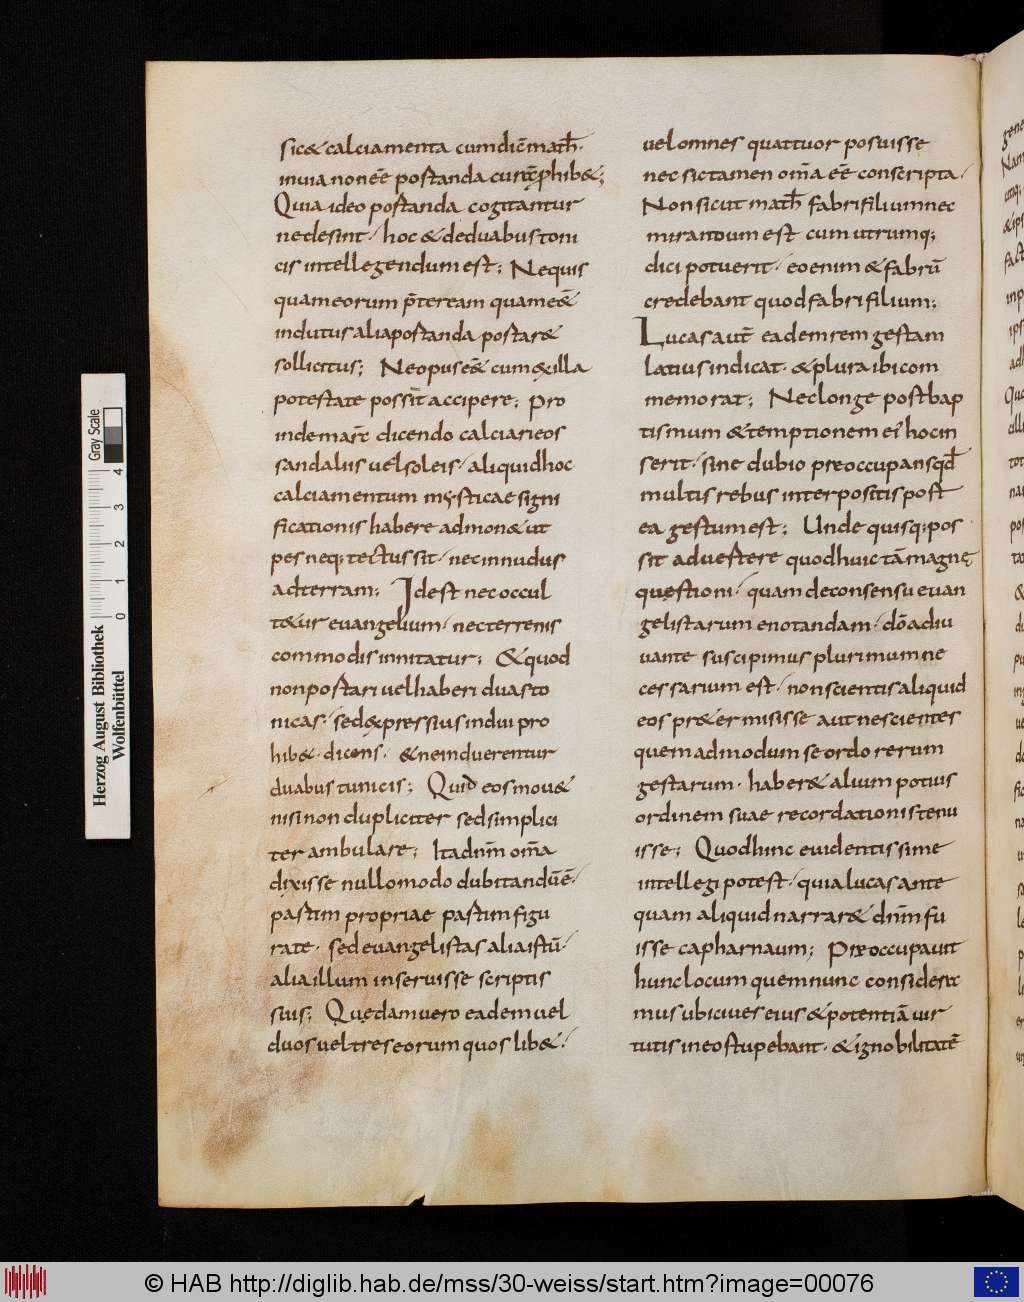 sic & calciamenta cum dic̄ math̄·
in uia non eē postanda cur ꝓhib&;
Quia ideo postanda cogitantur
ne desint· hoc & de duabus toni
cis intellegendum est; Nequis
quam eorum p̄ter eam qua me ē
indutus alia postanda postar&
sollicitus; Ne opus ē& cum ex illa
potestate possit accipere; Pro
inde marc̄ dicendo calciari eos
sandaliis uel soleis· aliquid hoc
calciamentum mysticae signi
ficationis habere admon& ut
pes neq; tectus sit· nec in nudus
ad terram; Id est nec occul
t&ur euangelium· nec terrenis
commodis innitatur; & quod
non postari uel haberi duas to
nicas· sed expressius indui pro
hib&· dicens· & ne induerentur
duabus tunicis; Quid eos mou&
nisi non dupliciter sed simplici
ter ambulare; Ita dn̄m om̄a
dixisse nullo modo dubitandū ē·
pastim propriae pastim figu
rate· sed euangelistas alia istū·
alia illum inseruisse scriptis
suis; Quędam uero eadem uel
duos uel tres eorum quos lib&·
uel omnes quattuor posuisse
nec sic tamen om̄a eē conscripta·
Non sicut math̄ fabri filium nec
mirandum est cum utrumq;
dici potuerit· eo enim & fabrū
credebant quod fabri filium;
Lucas aut̄ eadem rem gestam
latius indicat· & plura ibi com
memorat; Nec longe post bap
tismum & temptionem ei hoc in
serit· sine dubio preoccupans qđ
multis rebus interpositis post
ea gestum est; Unde quisq; pos
sit aduestere quod huic tā magnę
quęstioni· quam de consensu euan
gelistarum enotandam· dō adiu
uante suscipimus plurimum ne
cessarium est· non scientis aliquid
eos pr&ermisisse aut nescientes
quem admodum se ordo rerum
gestarum· haber& alium potius
ordinem suae recordationis tenu
isse; Quod hinc euidentissime
intellegi potest· quia lucas ante
quam aliquid narrar& dn̄m fu
isse capharnaum; Preoccupauit
hunc locum quem nunc considera
mus ubi ciues eius & potentiā uir
tutis in eo stupebant· & ignobilitatē
Herzog August Bibliothek
Wolfenbüttel
0 1 2 3 4
Gray Scale
© HAB http://diglib.hab.de/mss/30-weiss/start.htm?image=00076